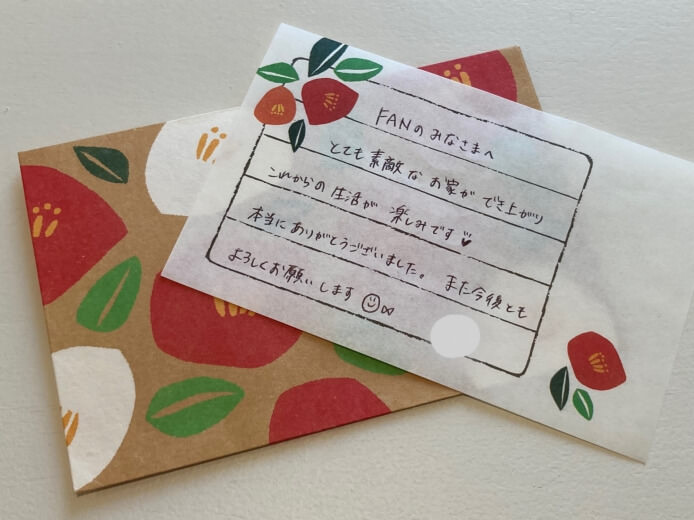 FANのみなさまへ
とても素敵なお家ができ上がり
これからの生活が楽しみです
本当にありがとうございました。また今後とも
よろしくお願いします